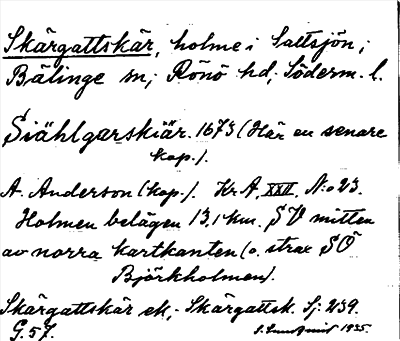 Skärgattskär, holme i Saltsjön;
Bälinge sn; Rönö hd; Söderm. l.
Siählgarskiär. 1673 (Här en senare
kop.).
A. Anderson (kop.). Kr A, XXII, N:o 23.
Holmen belägen 13,1 km. SV mitten
av norra kartkanten (o. strax SÖ
Björkholmen).
Skärgattskär ek; Skärgattsk. Sj: 239.
G. 57.
1935.